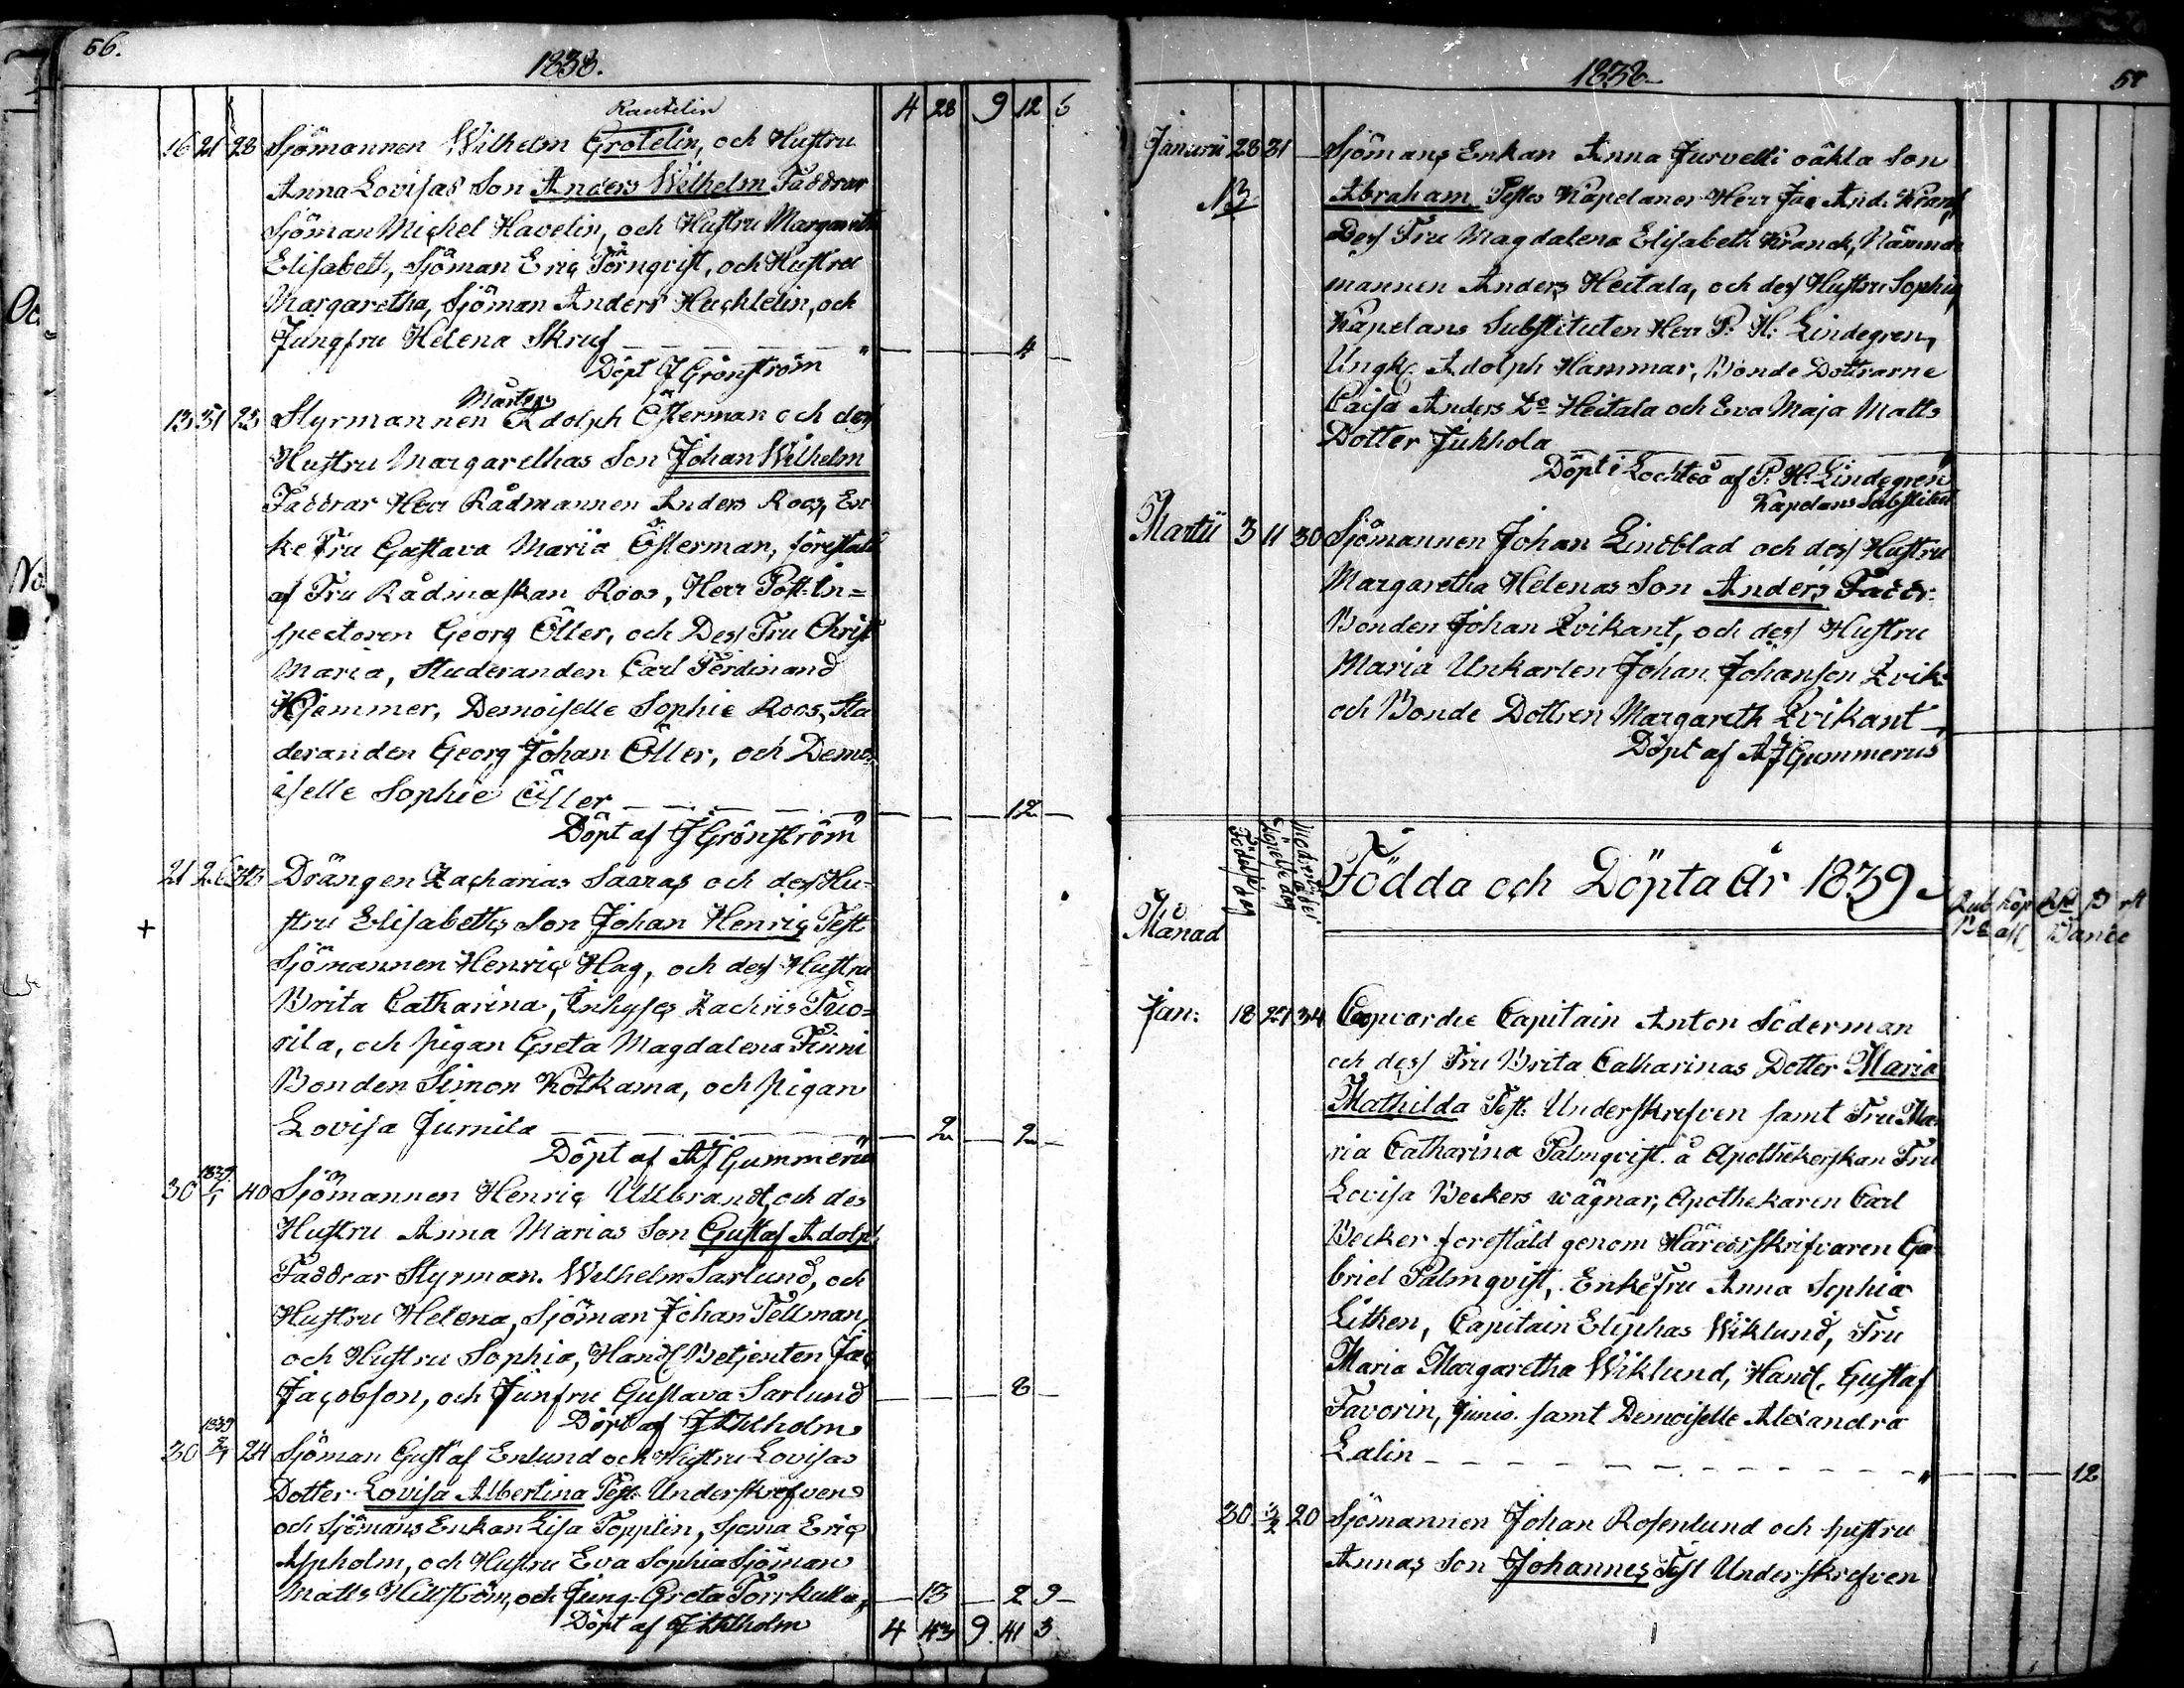 56.
1838.
4 28 9 12 6
Rautelin
16 21 28 Sjömannen Wilhelm Grotelin, och Hustru
Anna Lovisas Son Anders Wilhelm Faddrar
Sjöman Michel Havelin, och Hustru Margareth
Elisabeth, Sjöman Eric Törnqvist, och Hustru
Margaretha, Sjöman Anders Huchlelin, och
Jungfru Helena Skruf 4
Döpt J Grönström
Mårtens
13 31 23 Styrmannen Adolph Österman och dess
Hustru Margarethas Son Johan Wilhelm
Faddrar Herr Rådmannen Anders Roos, En
ke Fru Gustava Maria Österman, förestäld
af Fru Rådmaskan Roos, Herr Post-In=
spectoren Georg Öller, och Dess Fru Christ
Maria, Studeranden Carl Ferdinand
Hjemmer, Demoiselle Sophie Roos, Stu
deranden Georg Johan Öller, och Demo
iselle Sophie Öller 12
Döpt af J Grönström
21 26 Drängen Zacharias Saaras och dess Hu=
+ stru Elisabeths Son Johan Henric Test
Sjömannen Henric Hag, och dess Hustru
Brita Catharina, Inhyses Zachris Trio=
rila, och pigan Greta Magdalena Finni
Bonden Simon Kotkama, och pigan
Lovisa Jumila 2 2
Döpt af AJ Gummerus
1839
30 1/1 40 Sjömannen Henric Ullbrandt, och des
Hustru Anna Marias Son Gustaf Adolph
Faddrar Styrman. Wilhelm Sarlund, och
Hustru Helena, Sjöman Johan Tellman,
och Hustru Sophia, Handl Betjenten Jac
Jacobson, och Junfru Gustava Sarlund 8
Döpt af
1839
30 2/1 24 Sjöman Gustaf Enlund och Hustru Lovisas
Dotter Lovisa Albertina Test. Underskrefven
och Sjömans Enkan Lisa Topplin, Sjoma Eric
Aspholm, och Hustru Eva Sophia Sjöman
Matts Hillström, och Jung. Greta Torrkulla, 13 2 9
Döpt af
4 43 9 41 3
1838
57
Januarii 28 31 Sjömans Enkan Anna Jurvelli oäkta Son
NB Abraham Testes Kapelanen Herr Jac And. Kranck
Dess Fru Magdalena Elisabeth Kranck, Nämnde
mannen Anders Heitala, och dess Hustru Sophia,
Kapelans Substituten Herr P. H. Lindegren,
Ungk. Adolph Hammar, Bonde Dottrarne
Caisa Anders Do Heitala och Eva Maja Matts
Dotter Jukhola
Döpt i Lochteå af P. H. Lindegren
Kapelans Substitut
Martii 3 11 30 Sjömannen Johan Lindblad och dess Hustru
Margaretha Helenas Son Anders Faddr.
Bonden Johan Zvikant, och dess Hustru
Maria Unkarlen Johan Johanson Zvik.
och Bonde Dottren Margareth Zvikant
Döpt af AJ Gummerus
Månad
Födelse dag
Döpelse dag
Modrens ålder
Födda och Döpta År 1839
Jan: 18 27 34 Coopvardie Capitain Anton Söderman
och dess Fru Brita Catharinas Dotter Maria
Mathilda Test. Underskrefven samt Fru Ma
ria Catharina Palmqvist å Apothekerskan Fru
Lovisa Beckers wägnar, Apothekaren Carl
Becker foreställd genom Häredsskrifvaren Ga
briel Palmqvist, Enkefru Anna Sophia
Lithen, Capitain Eliphas Wiklund, Fru
Maria Margaretha Wiklund, Handl. Gustaf
Favorin, Junio. samt Demoiselle Alexandra
Lalin 12
30 3/2 20 Sjömannen Johan Rosenlund och hustru
Annas Son Johannes Test Underskrefven